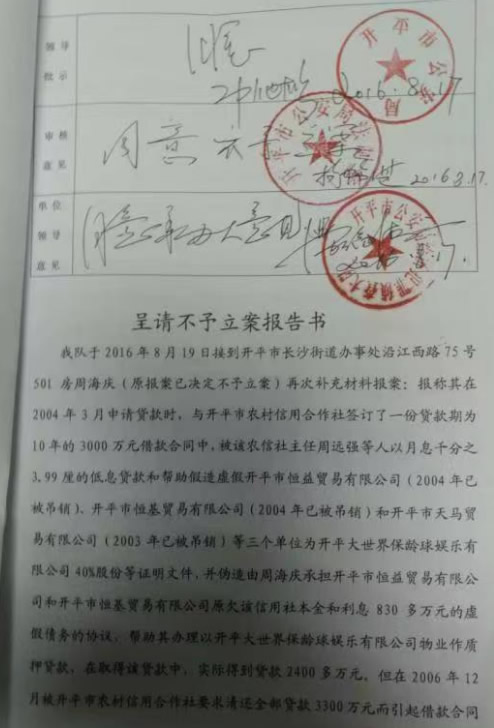 领导
批示
开平市公安局
2016.8.17
审核
意见
同意
2016.8.17.
单位
领导
意见
同意承办人意见
呈请不予立案报告书
我队于2016年8月19日接到开平市长沙街道办事处沿江西路75号
501房周海庆(原报案已决定不予立案)再次补充材料报案:报称其在
2004年3月申请贷款时,与开平市农村信用合作社签订了一份贷款期为
10年的3000万元借款合同中,被该农信社主任周远强等人以月息千分之
3.99厘的低息贷款和帮助假造虚假开平市恒益贸易有限公司(2004年已
被吊销)、开平市恒基贸易有限公司(2004年已被吊销)和开平市天马贸
易有限公司(2003年已被吊销)等三个单位为开平大世界保龄球娱乐有
限公司40%股份等证明文件,并伪造由周海庆承担开平市恒益贸易有限公
司和开平市恒基贸易有限公司原欠该信用社本金和利息830多万元的虚
假债务的协议,帮助其办理以开平大世界保龄球娱乐有限公司物业作质
押贷款,在取得该贷款中,实际得到贷款2400多万元,但在2006年12
月被开平市农村信用合作社要求清还全部贷款3300万元而引起借款合同